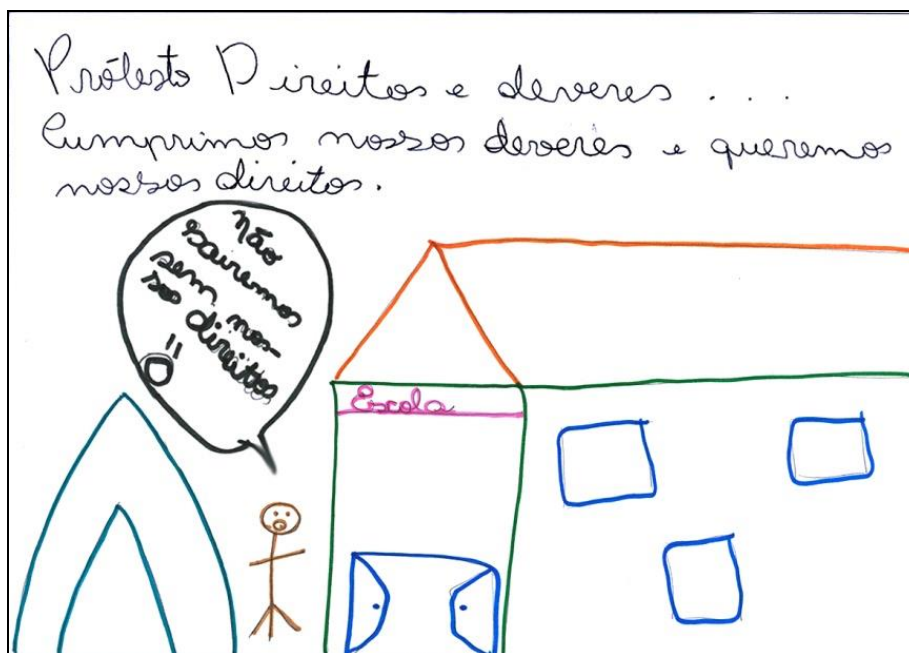 Prótesto Direitos e deveres . . .
Cumprimos nossos deveres e queremos
nossos direitos.
Não
sairemos
sem nos-
sos direitos
!!
Escola